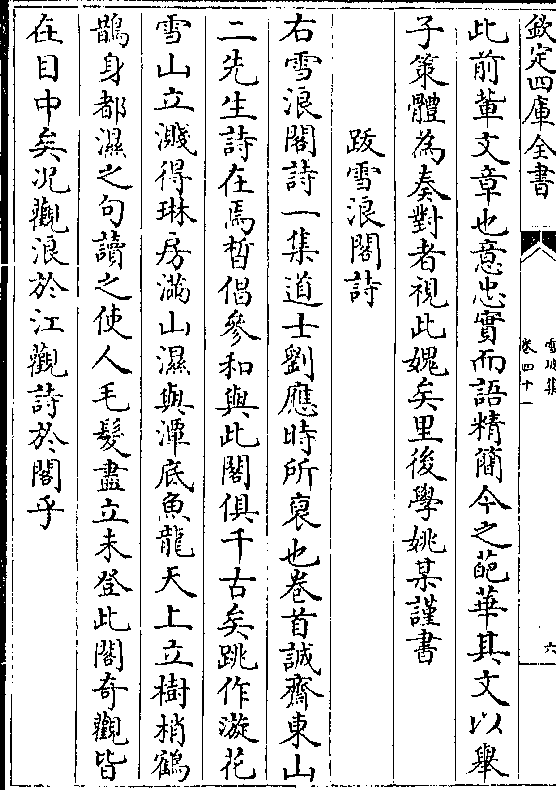 欽定四庫全書
雪坡集
卷四十一
六
此前輩文章也意忠實而語精簡今之葩華其文以舉
子策體為奏對者視此媿矣里後學姚某謹書
跋雪浪閣詩
右雪浪閣詩一集道士劉應時所裒也卷首誠齋東山
二先生詩在焉晳倡參和與此閣俱千古矣跳作漩花
雪山立濺得琳房滿山濕與潭底魚龍天上立樹梢鶴
鵲身都濕之句讀之使人毛髮盡立未登此閣奇觀皆
在目中矣况觀浪於江觀詩於閣乎